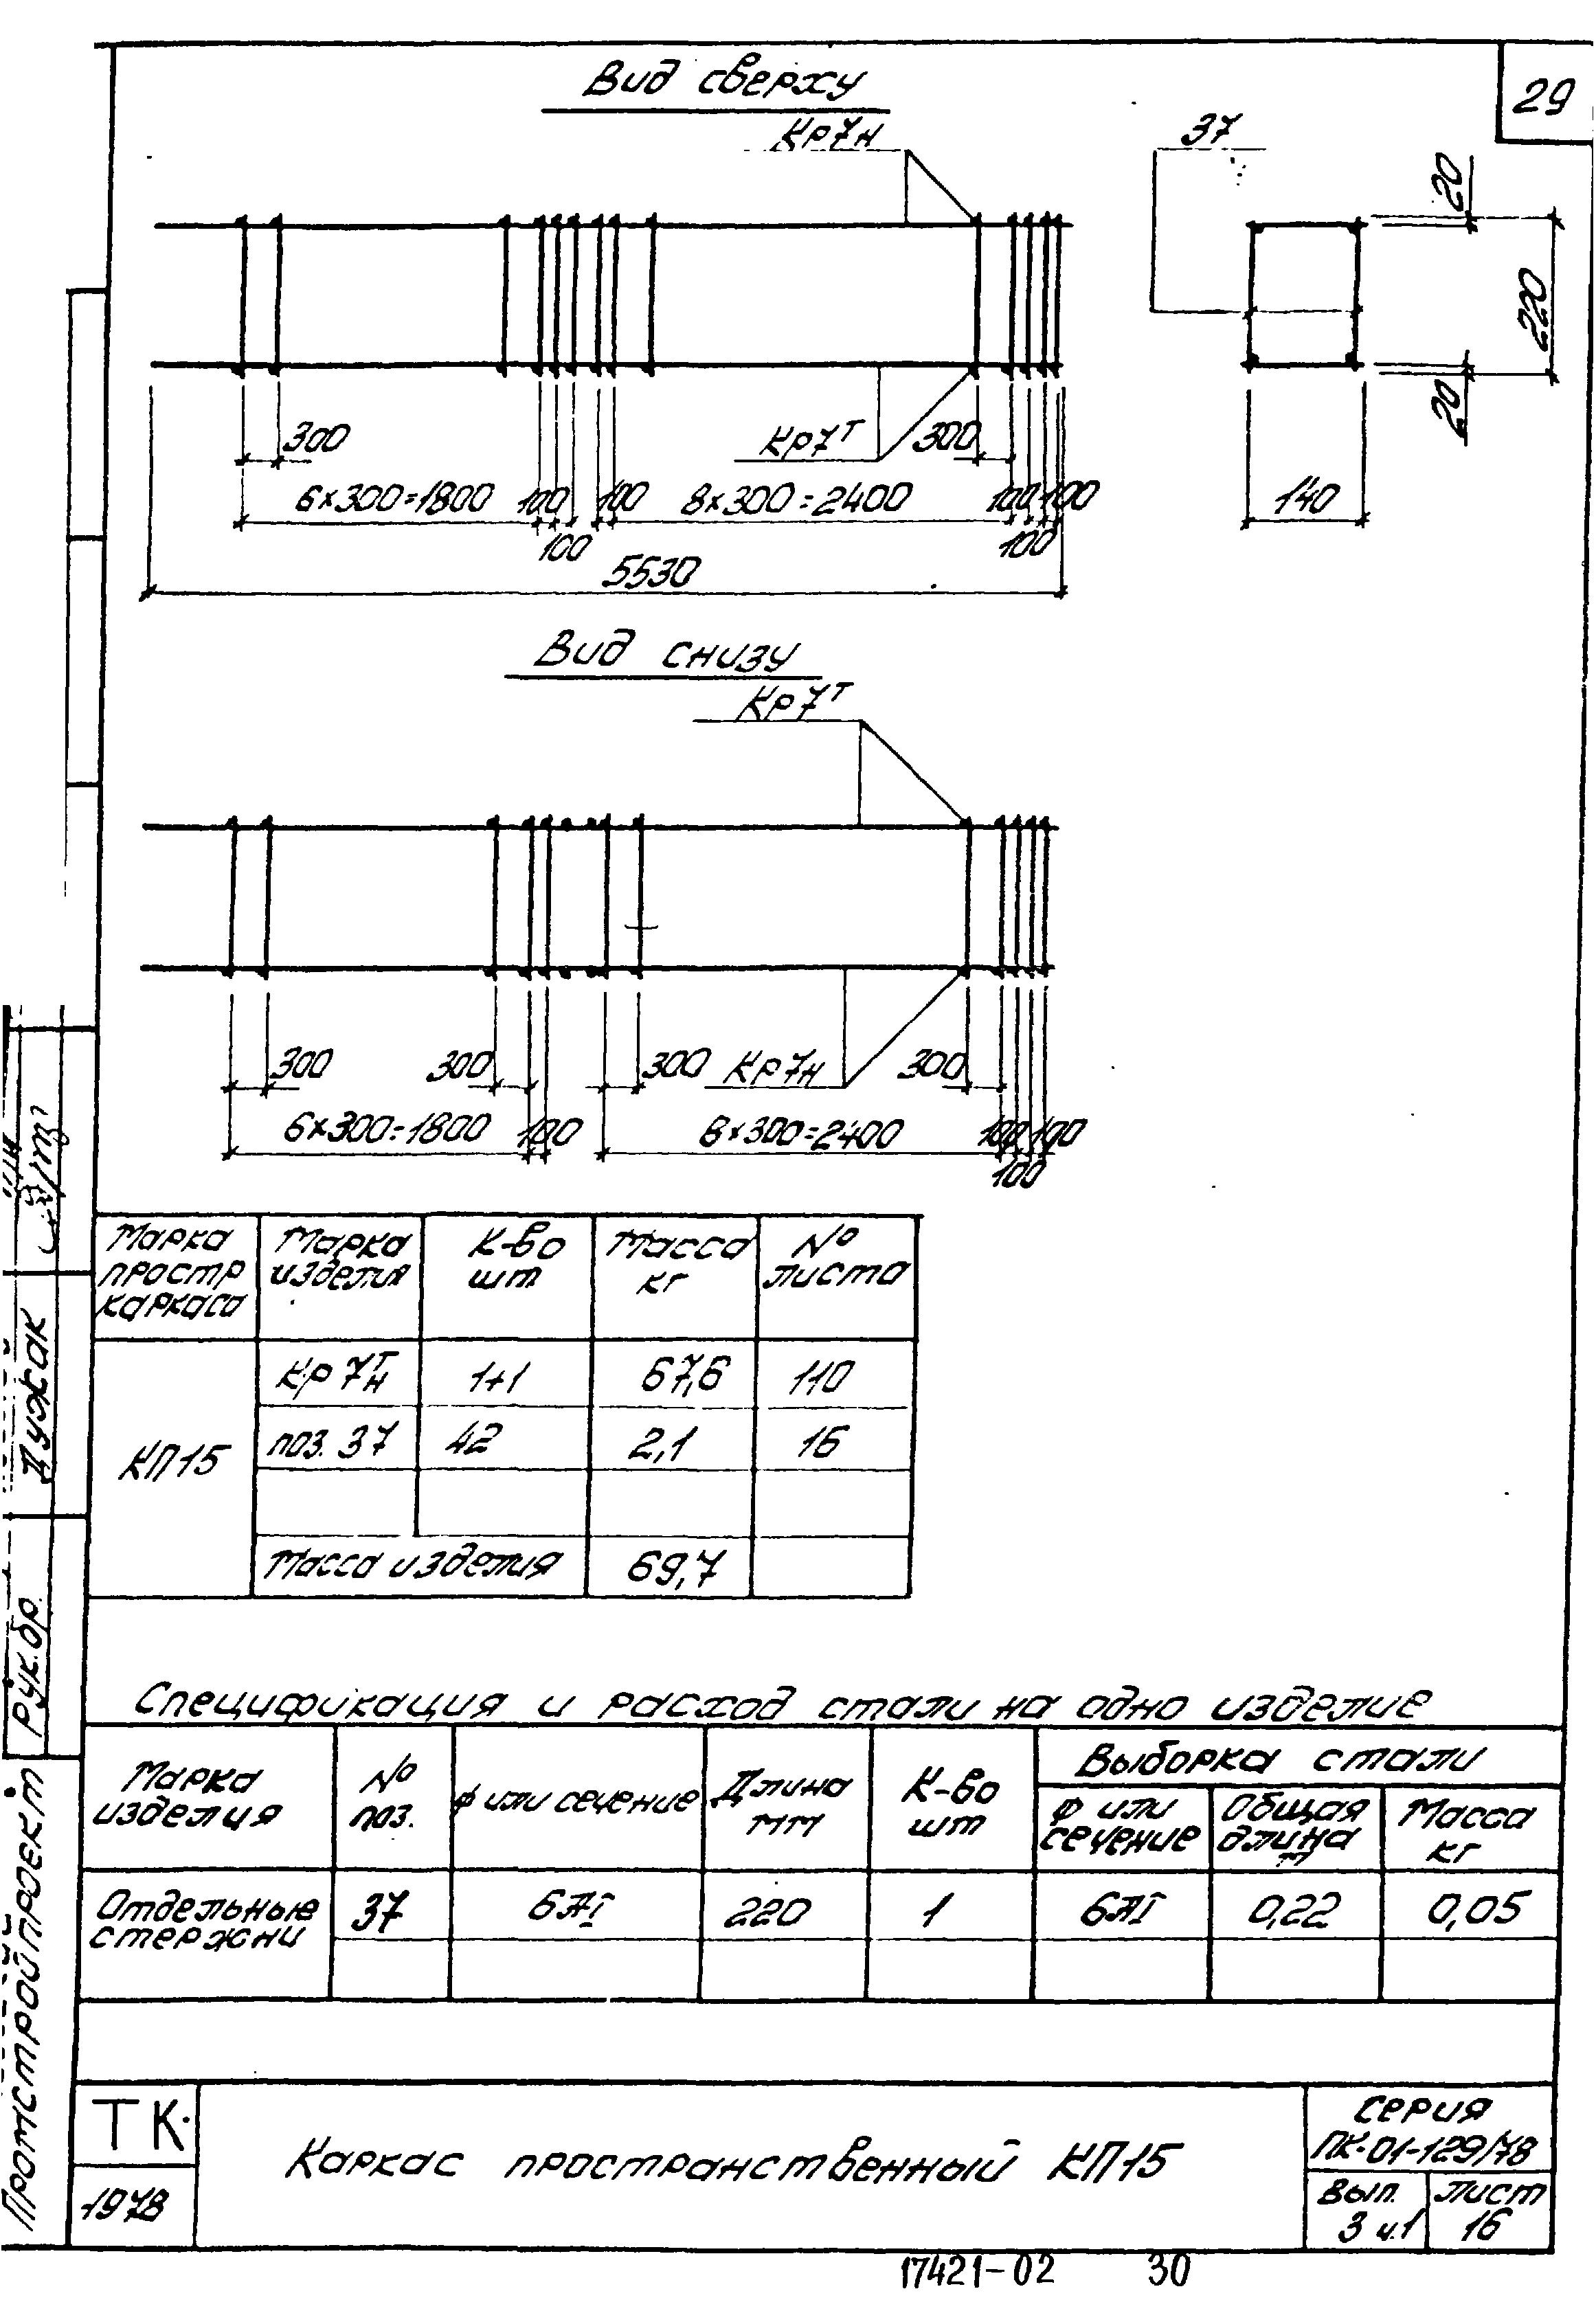 29
Вид сверху
Кр7н
37
20
220
20
140
300
Кр7т
300
6×300=1800
100
100
8×300=2400
100
100
100
100
5530
Вид снизу
Кр7т
300
300
300
Кр7н
300
6×300=1800
100
8×300=2400
100
100
100
Марка простр каркаса
Марка изделия
К-во шт
Масса кг
№ листа
КП15
Кр 7т/н
1+1
67,6
110
поз. 37
42
2,1
16
Масса изделия
69,7
Спецификация и расход стали на одно изделие
Марка изделия
№ поз.
ф или сечение
Длина мм
К-во шт
Выборка стали
ф или сечение
Общая длина м
Масса кг
Отдельные стержни
37
6АI
220
1
6АI
0,22
0,05
ТК
1978
Каркас пространственный КП15
Серия
ПК-01-129/78
Вып. 3 ч.1
Лист 16
17421-02
30
Промстройпроект
Рук.бр.
Дужак